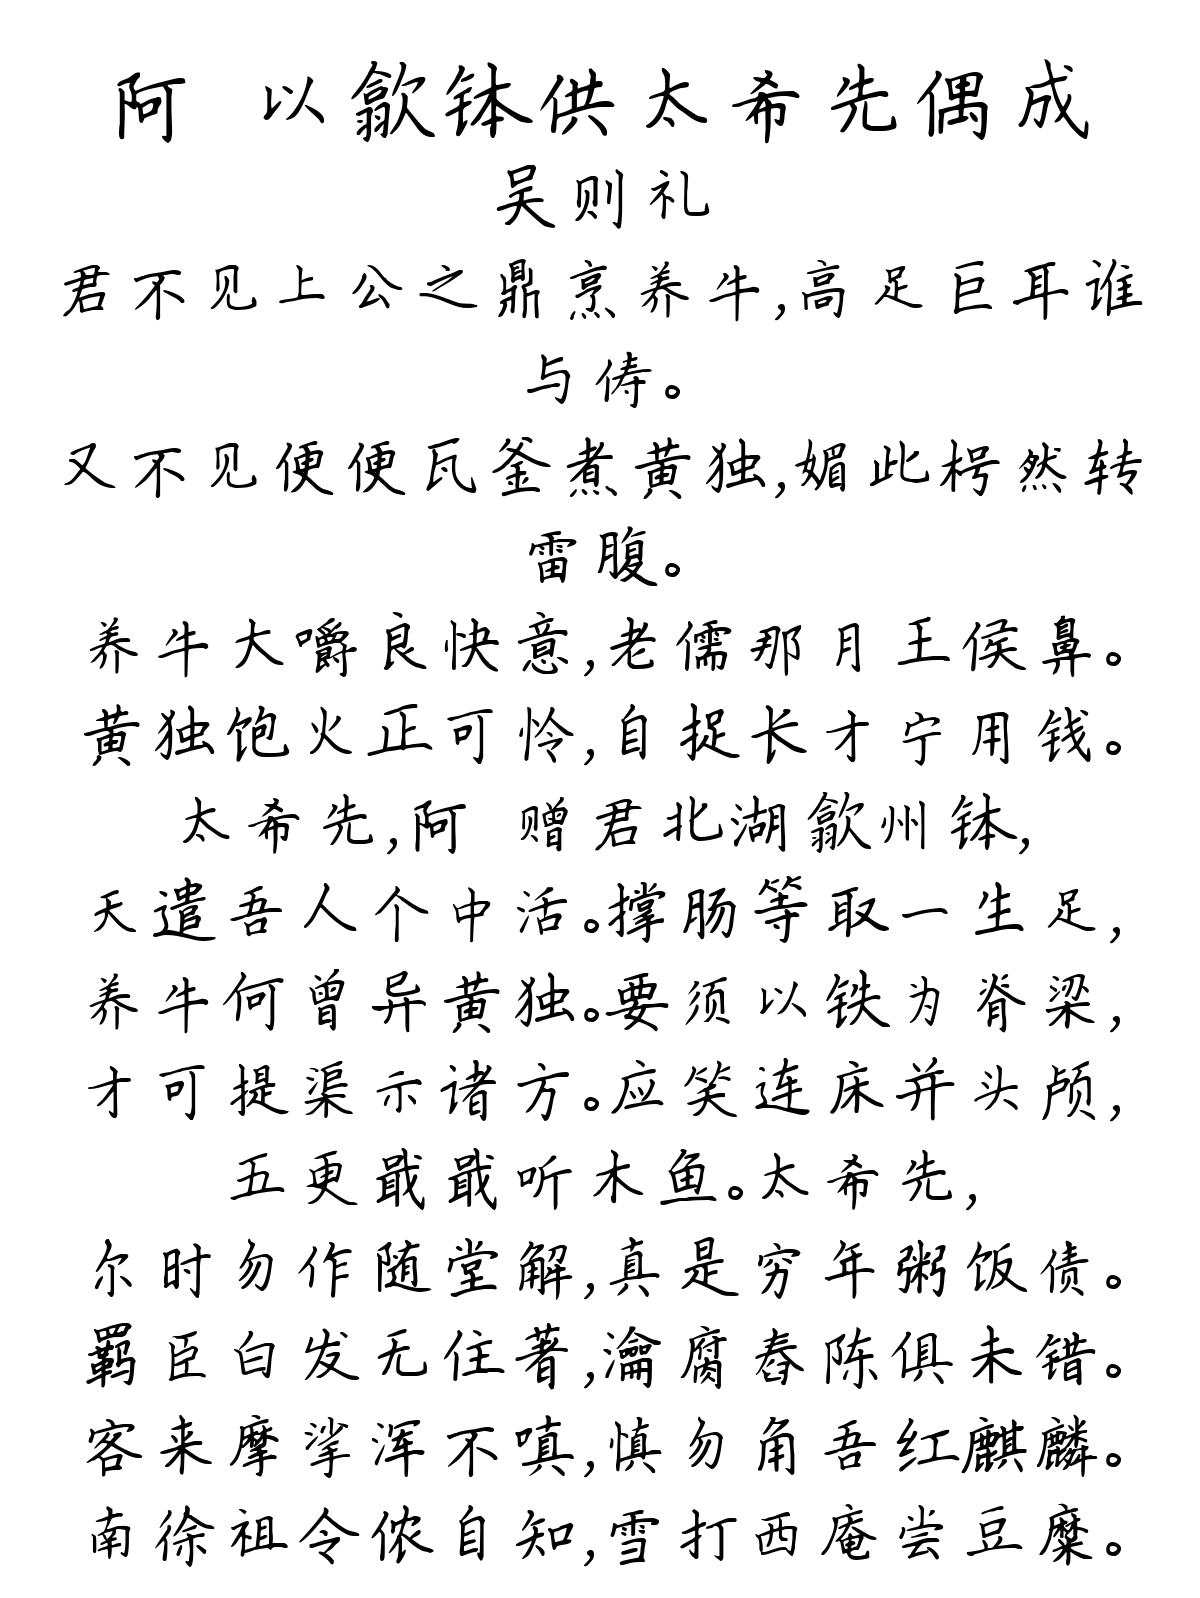 阿 以歙钵供太希先偶成
吴则礼
君不见上公之鼎烹养牛,高足巨耳谁
与俦。
又不见便便瓦釜煮黄独,媚此枵然转
雷腹。
养牛大嚼良快意,老儒那月王侯鼻。
黄独饱火正可怜,自捉长才宁用钱。
太希先,阿 赠君北湖歙州钵,
天遣吾人个中活。撑肠等取一生足,
养牛何曾异黄独。要须以铁为脊梁,
才可提渠示诸方。应笑连床并头颅,
五更戢戢听木鱼。太希先,
尔时勿作随堂解,真是穷年粥饭债。
羁臣白发无住著,瀹腐舂陈俱未错。
客来摩挲浑不嗔,慎勿角吾红麒麟。
南徐祖令侬自知,雪打西庵尝豆糜。